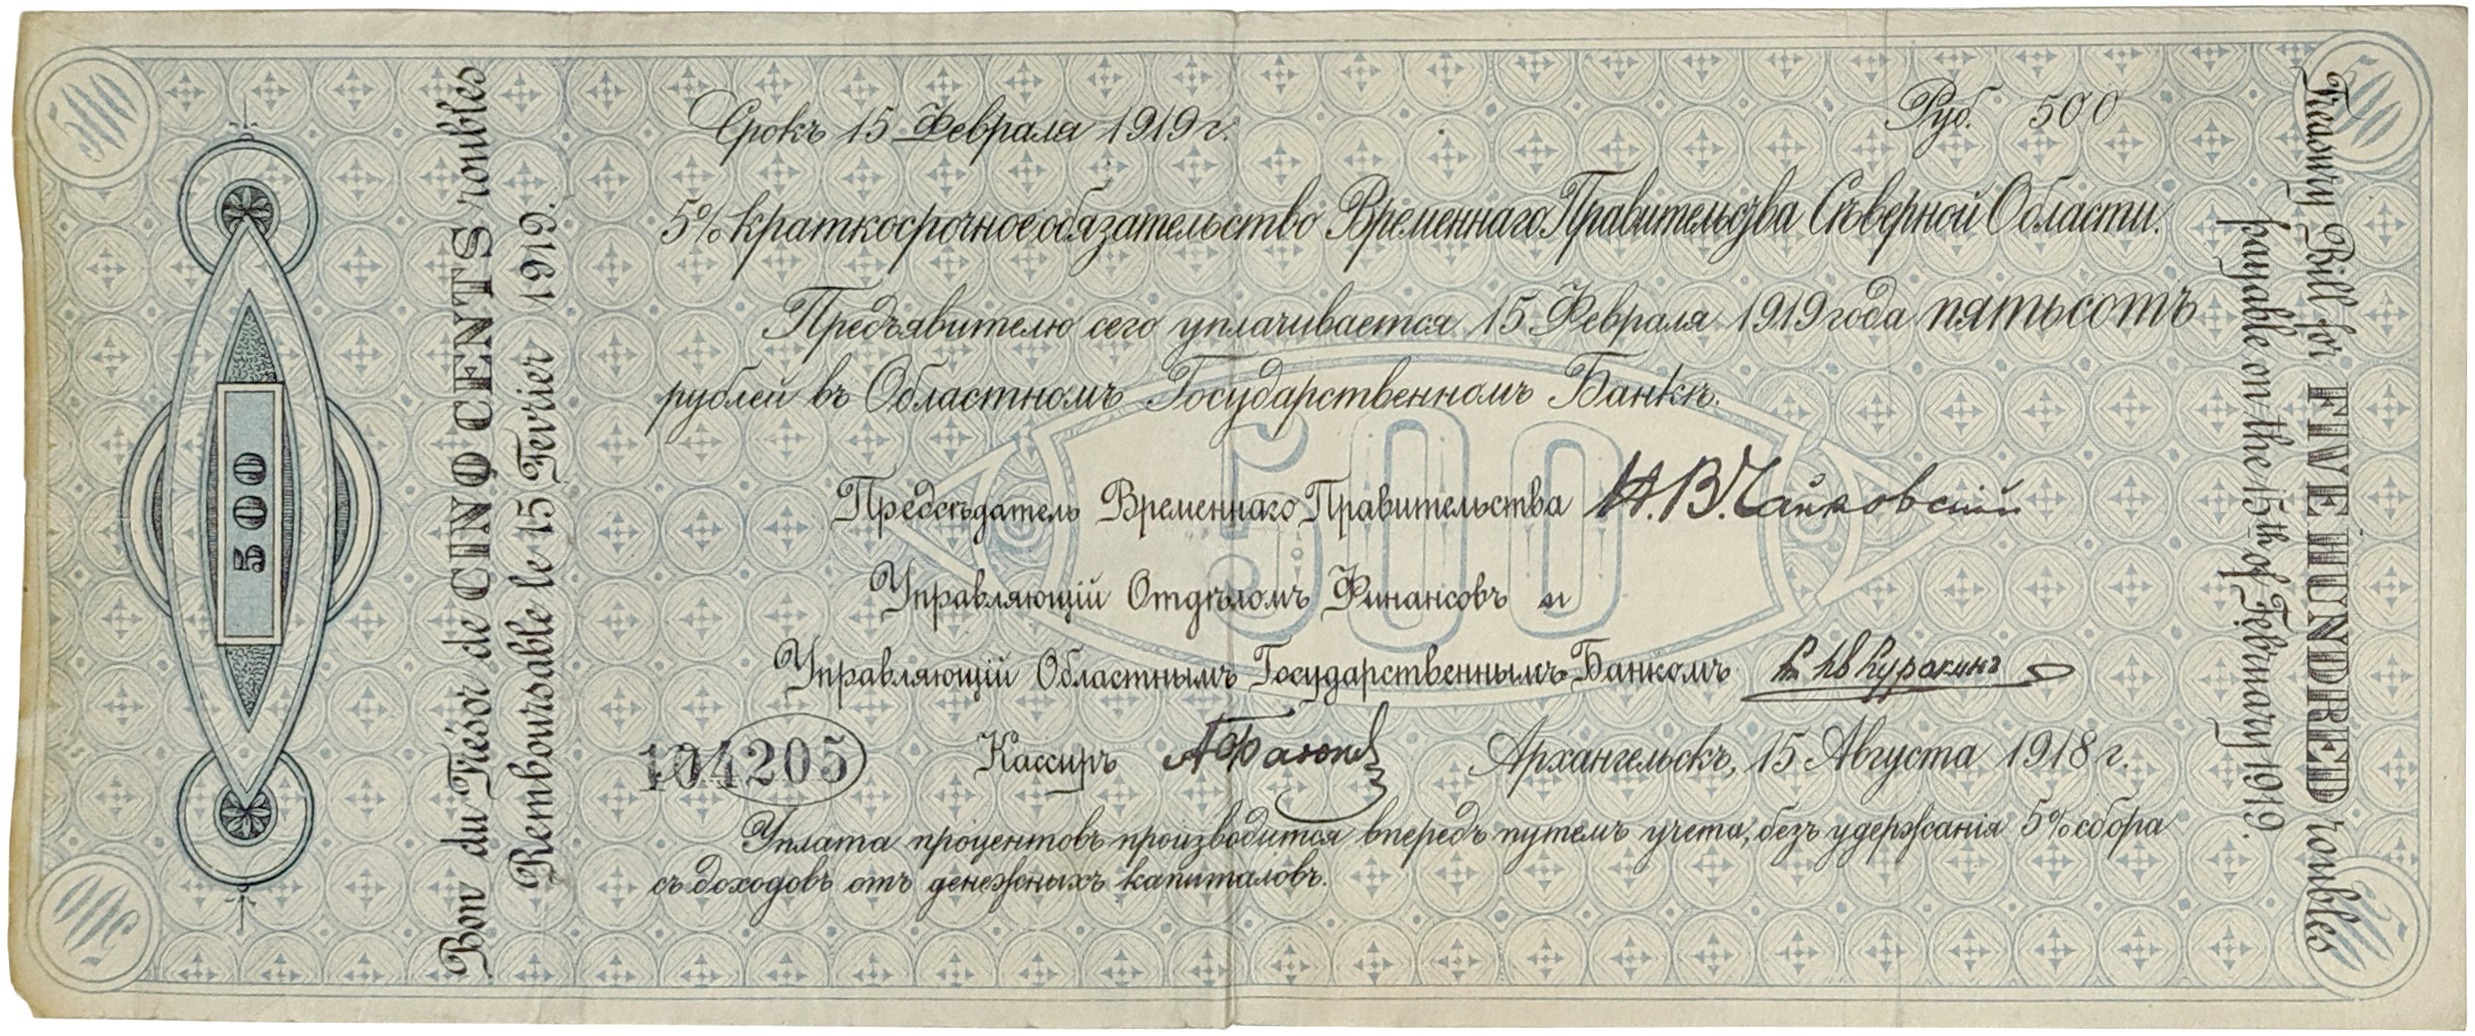 500
Bon du Trésor de CINQ CENTS roubles
Remboursable le 15 Fevrier 1919.
Срокъ 15 Февраля 1919 г.
Руб. 500
5% краткосрочное обязательство Временнаго Правительства Сѣверной Области.
Предъявителю сего уплачивается 15 Февраля 1919 года пятьсотъ
рублей въ Областномъ Государственномъ Банкѣ.
500
Предсѣдатель Временнаго Правительства Н.В. Чайковскій
Управляющій Отдѣломъ Финансовъ и
Управляющій Областнымъ Государственнымъ Банкомъ Куракинъ
104205
Кассиръ
Архангельскъ, 15 Августа 1918 г.
Уплата процентовъ производится впередъ путемъ учета, безъ удержанія 5% сбора
съ доходовъ отъ денежныхъ капиталовъ.
Treasury Bill for FIVE HUNDRED roubles
payable on the 15th of February 1919.
500
500
500
500